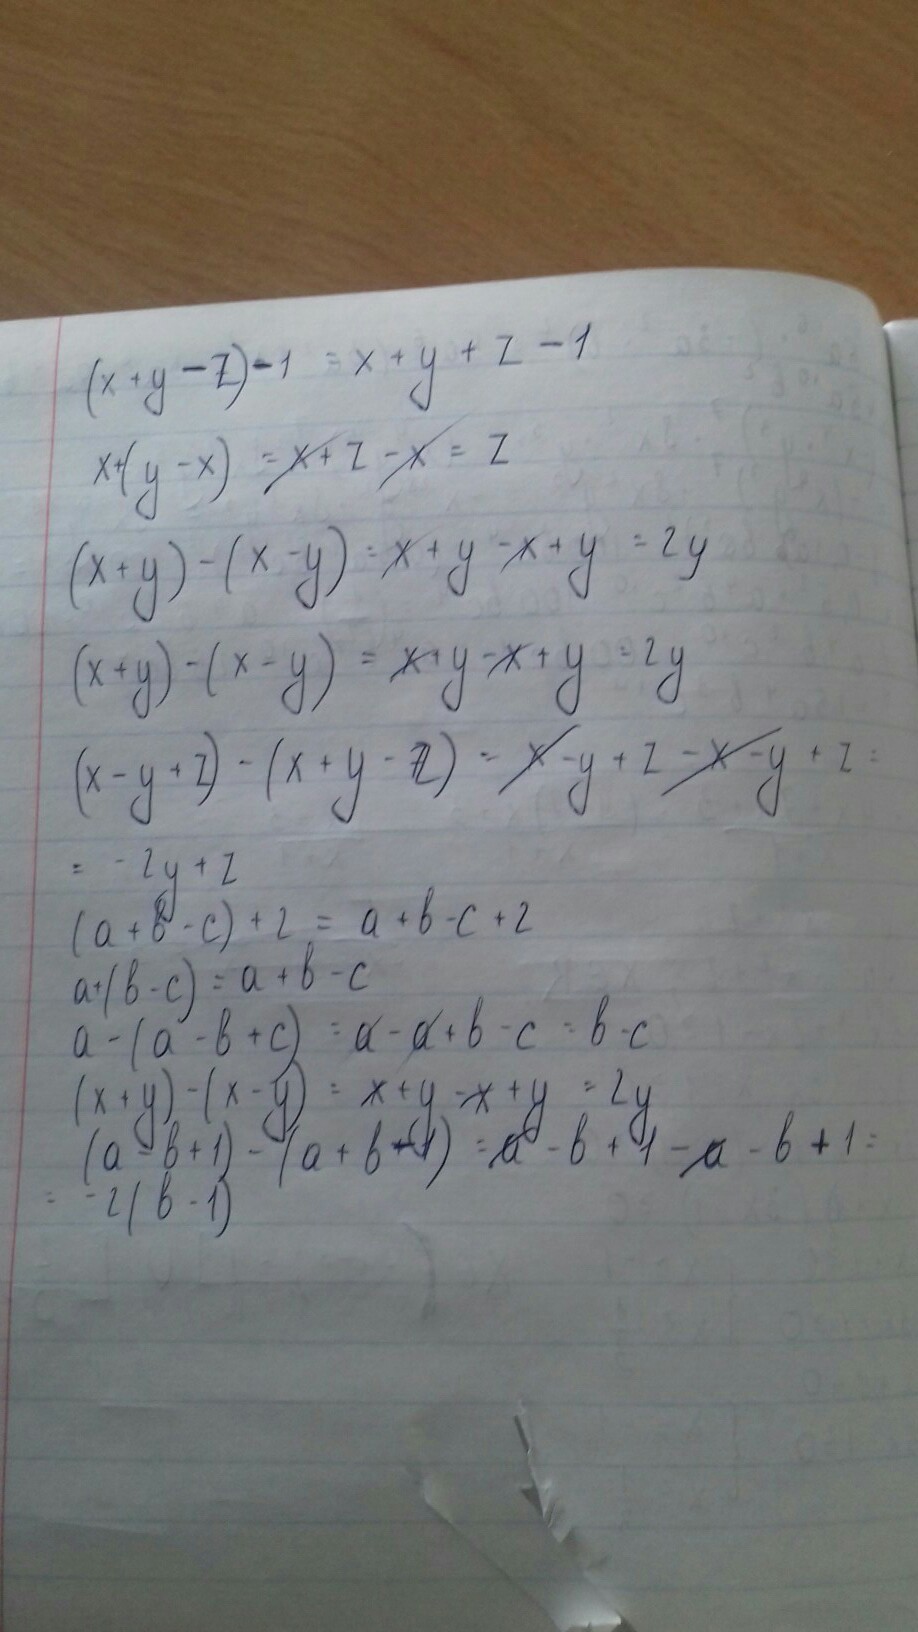 (x + y - z) - 1 = x + y + z - 1
x + (y - x) = x + z - x = z
(x + y) - (x - y) = x + y - x + y = 2y
(x + y) - (x - y) = x + y - x + y = 2y
(x - y + z) - (x + y - z) = x - y + z - x - y + z =
= -2y + z
(a + b - c) + 2 = a + b - c + 2
a + (b - c) = a + b - c
a - (a - b + c) = a - a + b - c = b - c
(x + y) - (x - y) = x + y - x + y = 2y
(a - b + 1) - (a + b - 1) = a - b + 1 - a - b + 1 =
= -2(b - 1)